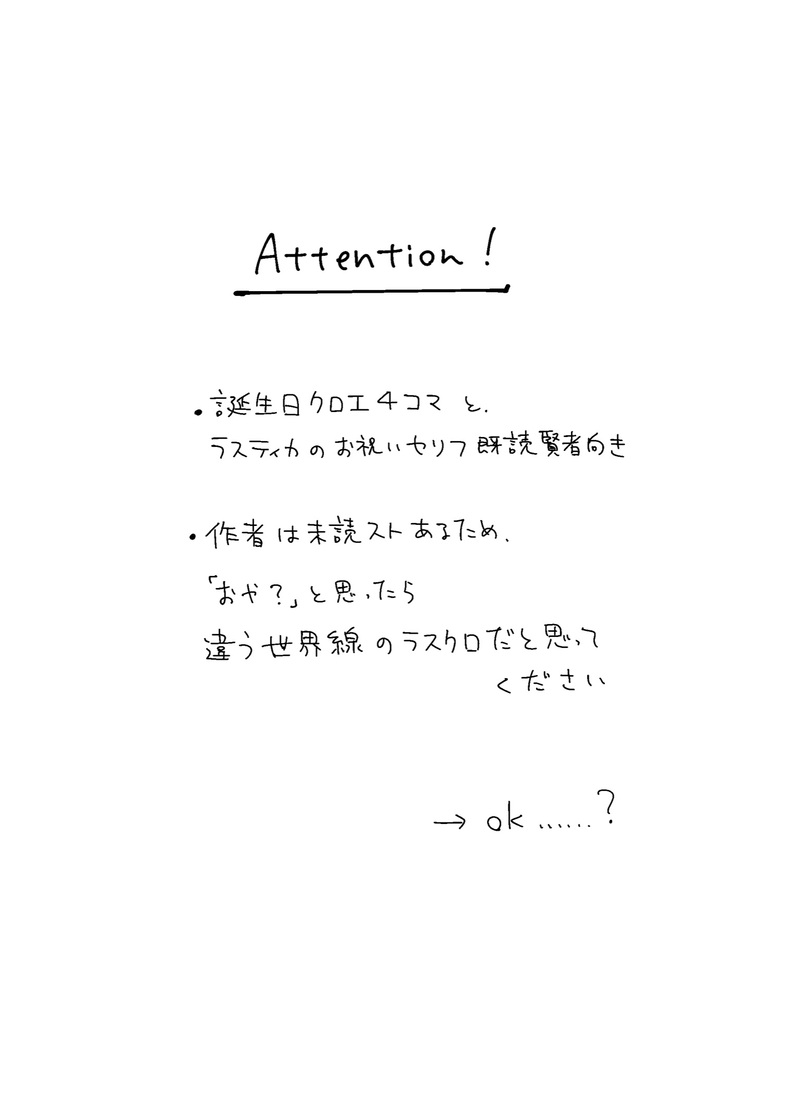 Attention!
・誕生日クロエ4コマ と、
ラスティカの お祝いセリフ 既読賢者向き
・作者は未読ストあるため、
「おや？」と思ったら
違う世界線のラスクロだと思って
ください
→ ok ......?